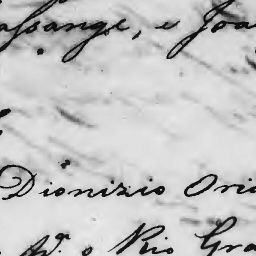 assange, e Joa
Dionizio Ori
Nª. o Rio Gra